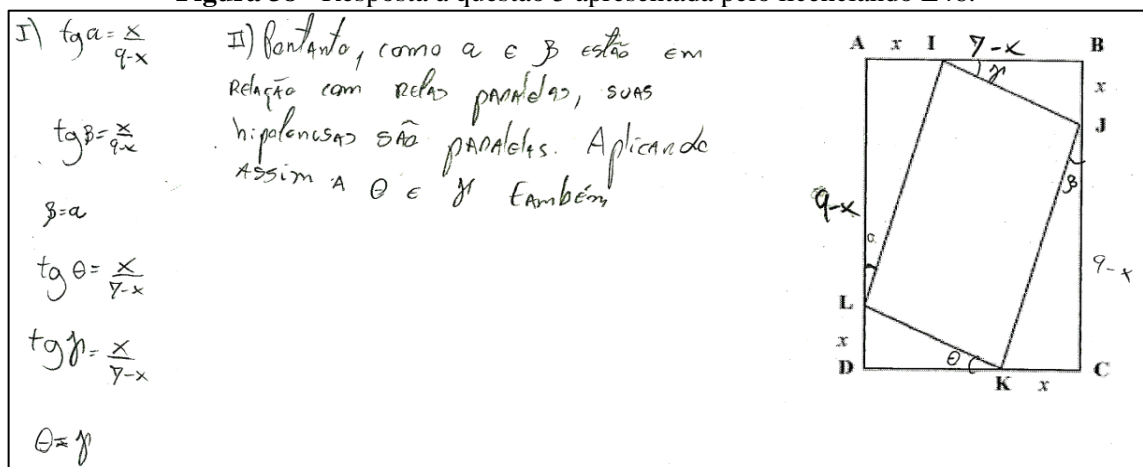 Figura 38 - Resposta à questão 3 apresentada pelo licenciando L48.
I) tg α = x/9-x
tg β = x/9-x
β = α
tg θ = x/7-x
tg γ = x/7-x
θ = γ
II) Portanto, como α e β estão em
Relação com retas paralelas, suas
hipotenusas são paralelas. Aplicando
Assim A θ e γ também
A x I 7-x B
γ
x
J
β
9-x
α
9-x
L
x
θ
D K x C